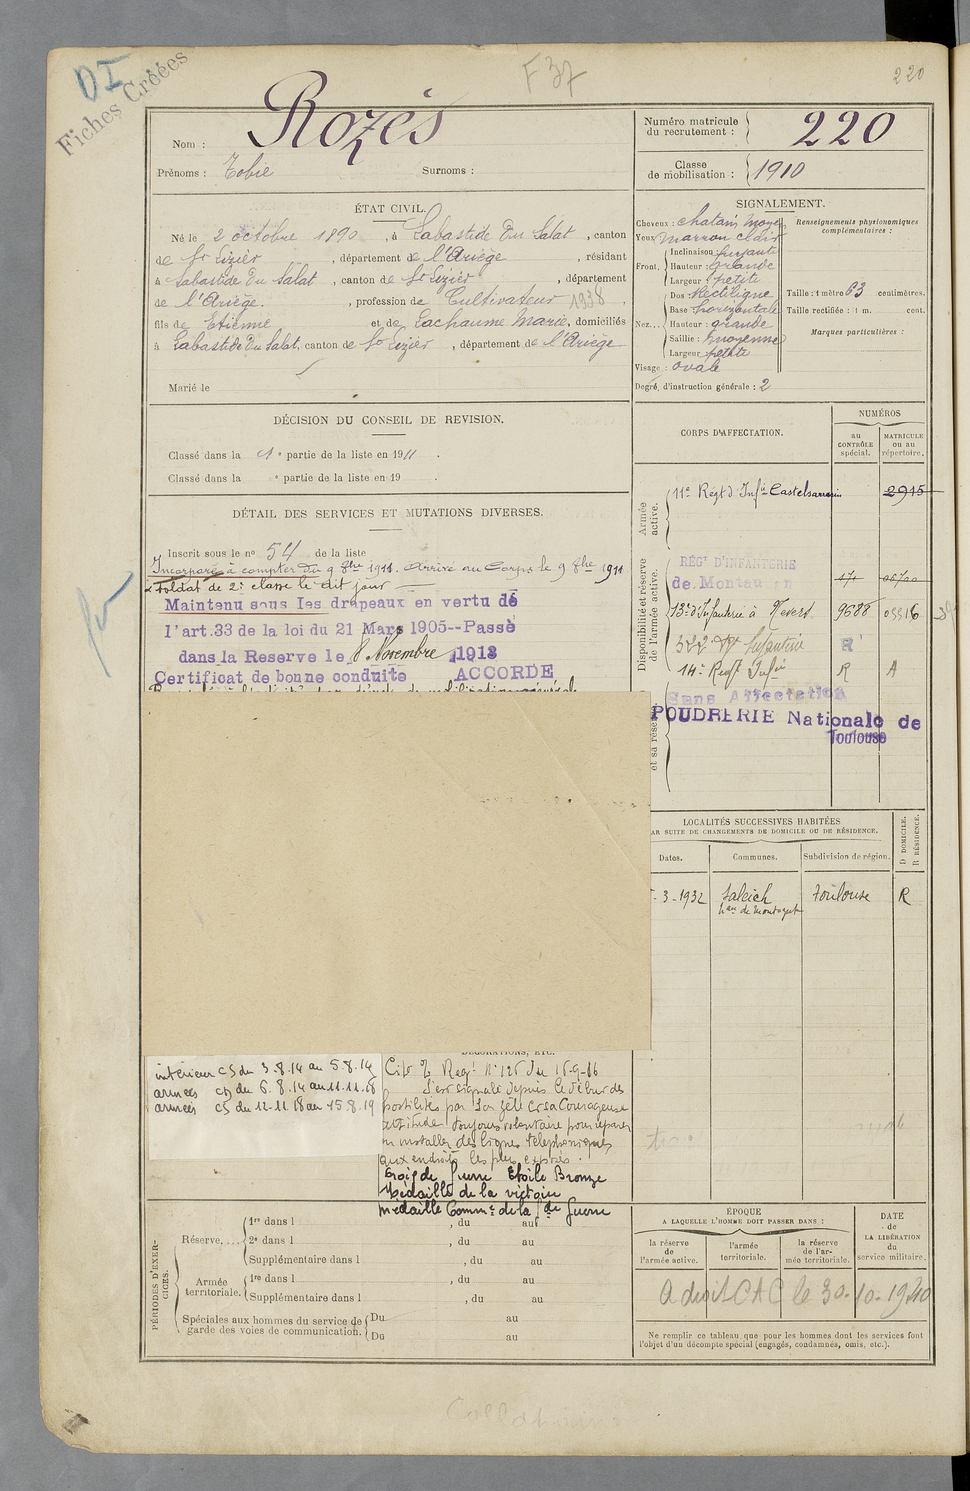 DI
Fiches Créées
F 37
220
Nom : Rozès
Prénoms : Tobie Surnoms :
Numéro matricule du recrutement : 220
Classe de mobilisation : 1910
ÉTAT CIVIL.
Né le 2 octobre 1890, à Labastide du Salat, canton
de St Lizier, département de l'Ariège, résidant
à Labastide du Salat, canton de St Lizier, département
de l'Ariège, profession de Cultivateur 1938,
fils de Etienne et de Lachaume Marie, domiciliés
à Labastide du Salat, canton de St Lizier, département de l'Ariège
Marié le
SIGNALEMENT.
Cheveux : chatain moyen
Yeux marron clair
Front. Inclinaison fuyante
Hauteur : grande
Largeur : petite
Nez... Dos : Rectiligne
Base horizontale
Hauteur : grande
Saillie : moyenne
Largeur petite
Visage : ovale
Degré d'instruction générale : 2
Renseignements physionomiques complémentaires :
Taille : 1 mètre 63 centimètres.
Taille rectifiée : 1 m. cent.
Marques particulières :
DÉCISION DU CONSEIL DE REVISION.
Classé dans la 1e partie de la liste en 1911.
Classé dans la e partie de la liste en 19 .
DÉTAIL DES SERVICES ET MUTATIONS DIVERSES.
Inscrit sous le no 54 de la liste
Incorporé à compter du 9 8bre 1911. Arrivé au Corps le 9 8bre 1911
Soldat de 2e classe le dit jour
Maintenu sous les drapeaux en vertu de
l'art.33 de la loi du 21 Mars 1905--Passé
dans la Reserve le 8 Novembre 1913
Certificat de bonne conduite ACCORDE
CORPS D'AFFECTATION.
NUMÉROS
au CONTRÔLE spécial.
MATRICULE ou au répertoire.
Armée active.
11e Régt d'Infie Castelsarrasin 2915
Disponibilité et réserve de l'armée active.
RÉGt D'INFANTERIE
de Montauban
13e d'Infanterie à Nevers 9688 03516
322 Rt Infanterie R
14e Regt Infie R A
et sa réserve
Sans Affectation
POUDRERIE Nationale de
Toulouse
LOCALITÉS SUCCESSIVES HABITÉES
AR SUITE DE CHANGEMENTS DE DOMICILE OU DE RÉSIDENCE.
Dates. Communes. Subdivision de région. D DOMICILE. R RÉSIDENCE.
-3-1932 Saleich Toulouse R
DÉCORATIONS, ETC.
intérieur CS du 3.8.14 au 5.8.14
armées CD du 6.8.14 au 11.11.18
armées CS du 12-11.18 au 15.8.19
Cité o/ Regt N° 125 du 15-9-16
S'est signalé depuis le début des
hostilités par son zèle et sa Courageuse
attitude toujours volontaire pour réparer
ou installer des lignes téléphoniques
aux endroits les plus exposés.
Croix de guerre Etoile Bronze
Médaille de la victoire
Médaille Comme de la Gde Guerre
PÉRIODES D'EXERCICES.
Réserve.... 1re dans l , du au
2e dans l , du au
Supplémentaire dans l , du au
Armée territoriale. 1re dans l , du au
Supplémentaire dans l , du au
Spéciales aux hommes du service de garde des voies de communication. Du au
Du au
ÉPOQUE
A LAQUELLE L'HOMME DOIT PASSER DANS :
la réserve de l'armée active.
l'armée territoriale.
la réserve de l'armée territoriale.
DATE de LA LIBÉRATION du service militaire.
A droit CAC le 30-10-1940
Ne remplir ce tableau que pour les hommes dont les services font
l'objet d'un décompte spécial (engagés, condamnés, omis, etc.).